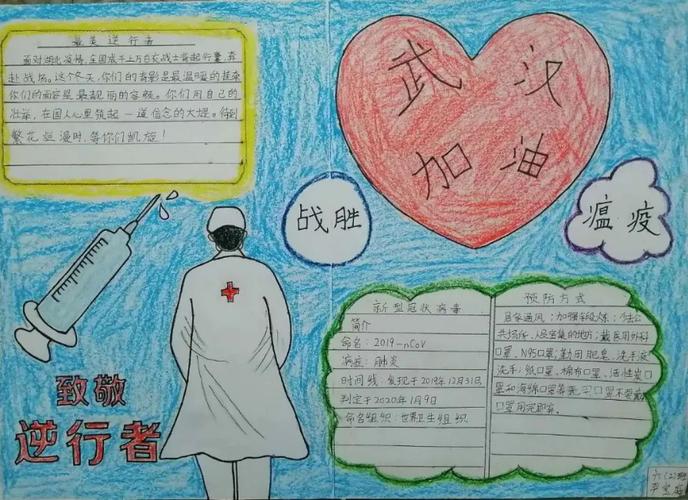 最美逆行者
面对湖北疫情,全国成千上万白衣战士背起行囊,奔
赴战场。这个冬天,你们的背影是最温暖的
你们的面容是最靓丽的容颜。你们用自己的
在国人心里筑起一道信念的大堤。待到
繁花烂漫时,等你们凯旋!
武汉
加油
战胜
瘟疫
致敬
逆行者
新型冠状病毒
简介
命名:2019-nCoV
病症:肺炎
时间线:发现于2019年12月31日
判定于2020年1月9日
命名组织:世界卫生组织
预防方式
居家通风;加强锻炼;少去公
共场所,人员密集的地方;戴医用外科
口罩,N95口罩;勤用肥皂,洗手液
洗手;纸口罩、棉布口罩、活性炭口
罩和海绵口罩
六(2)班